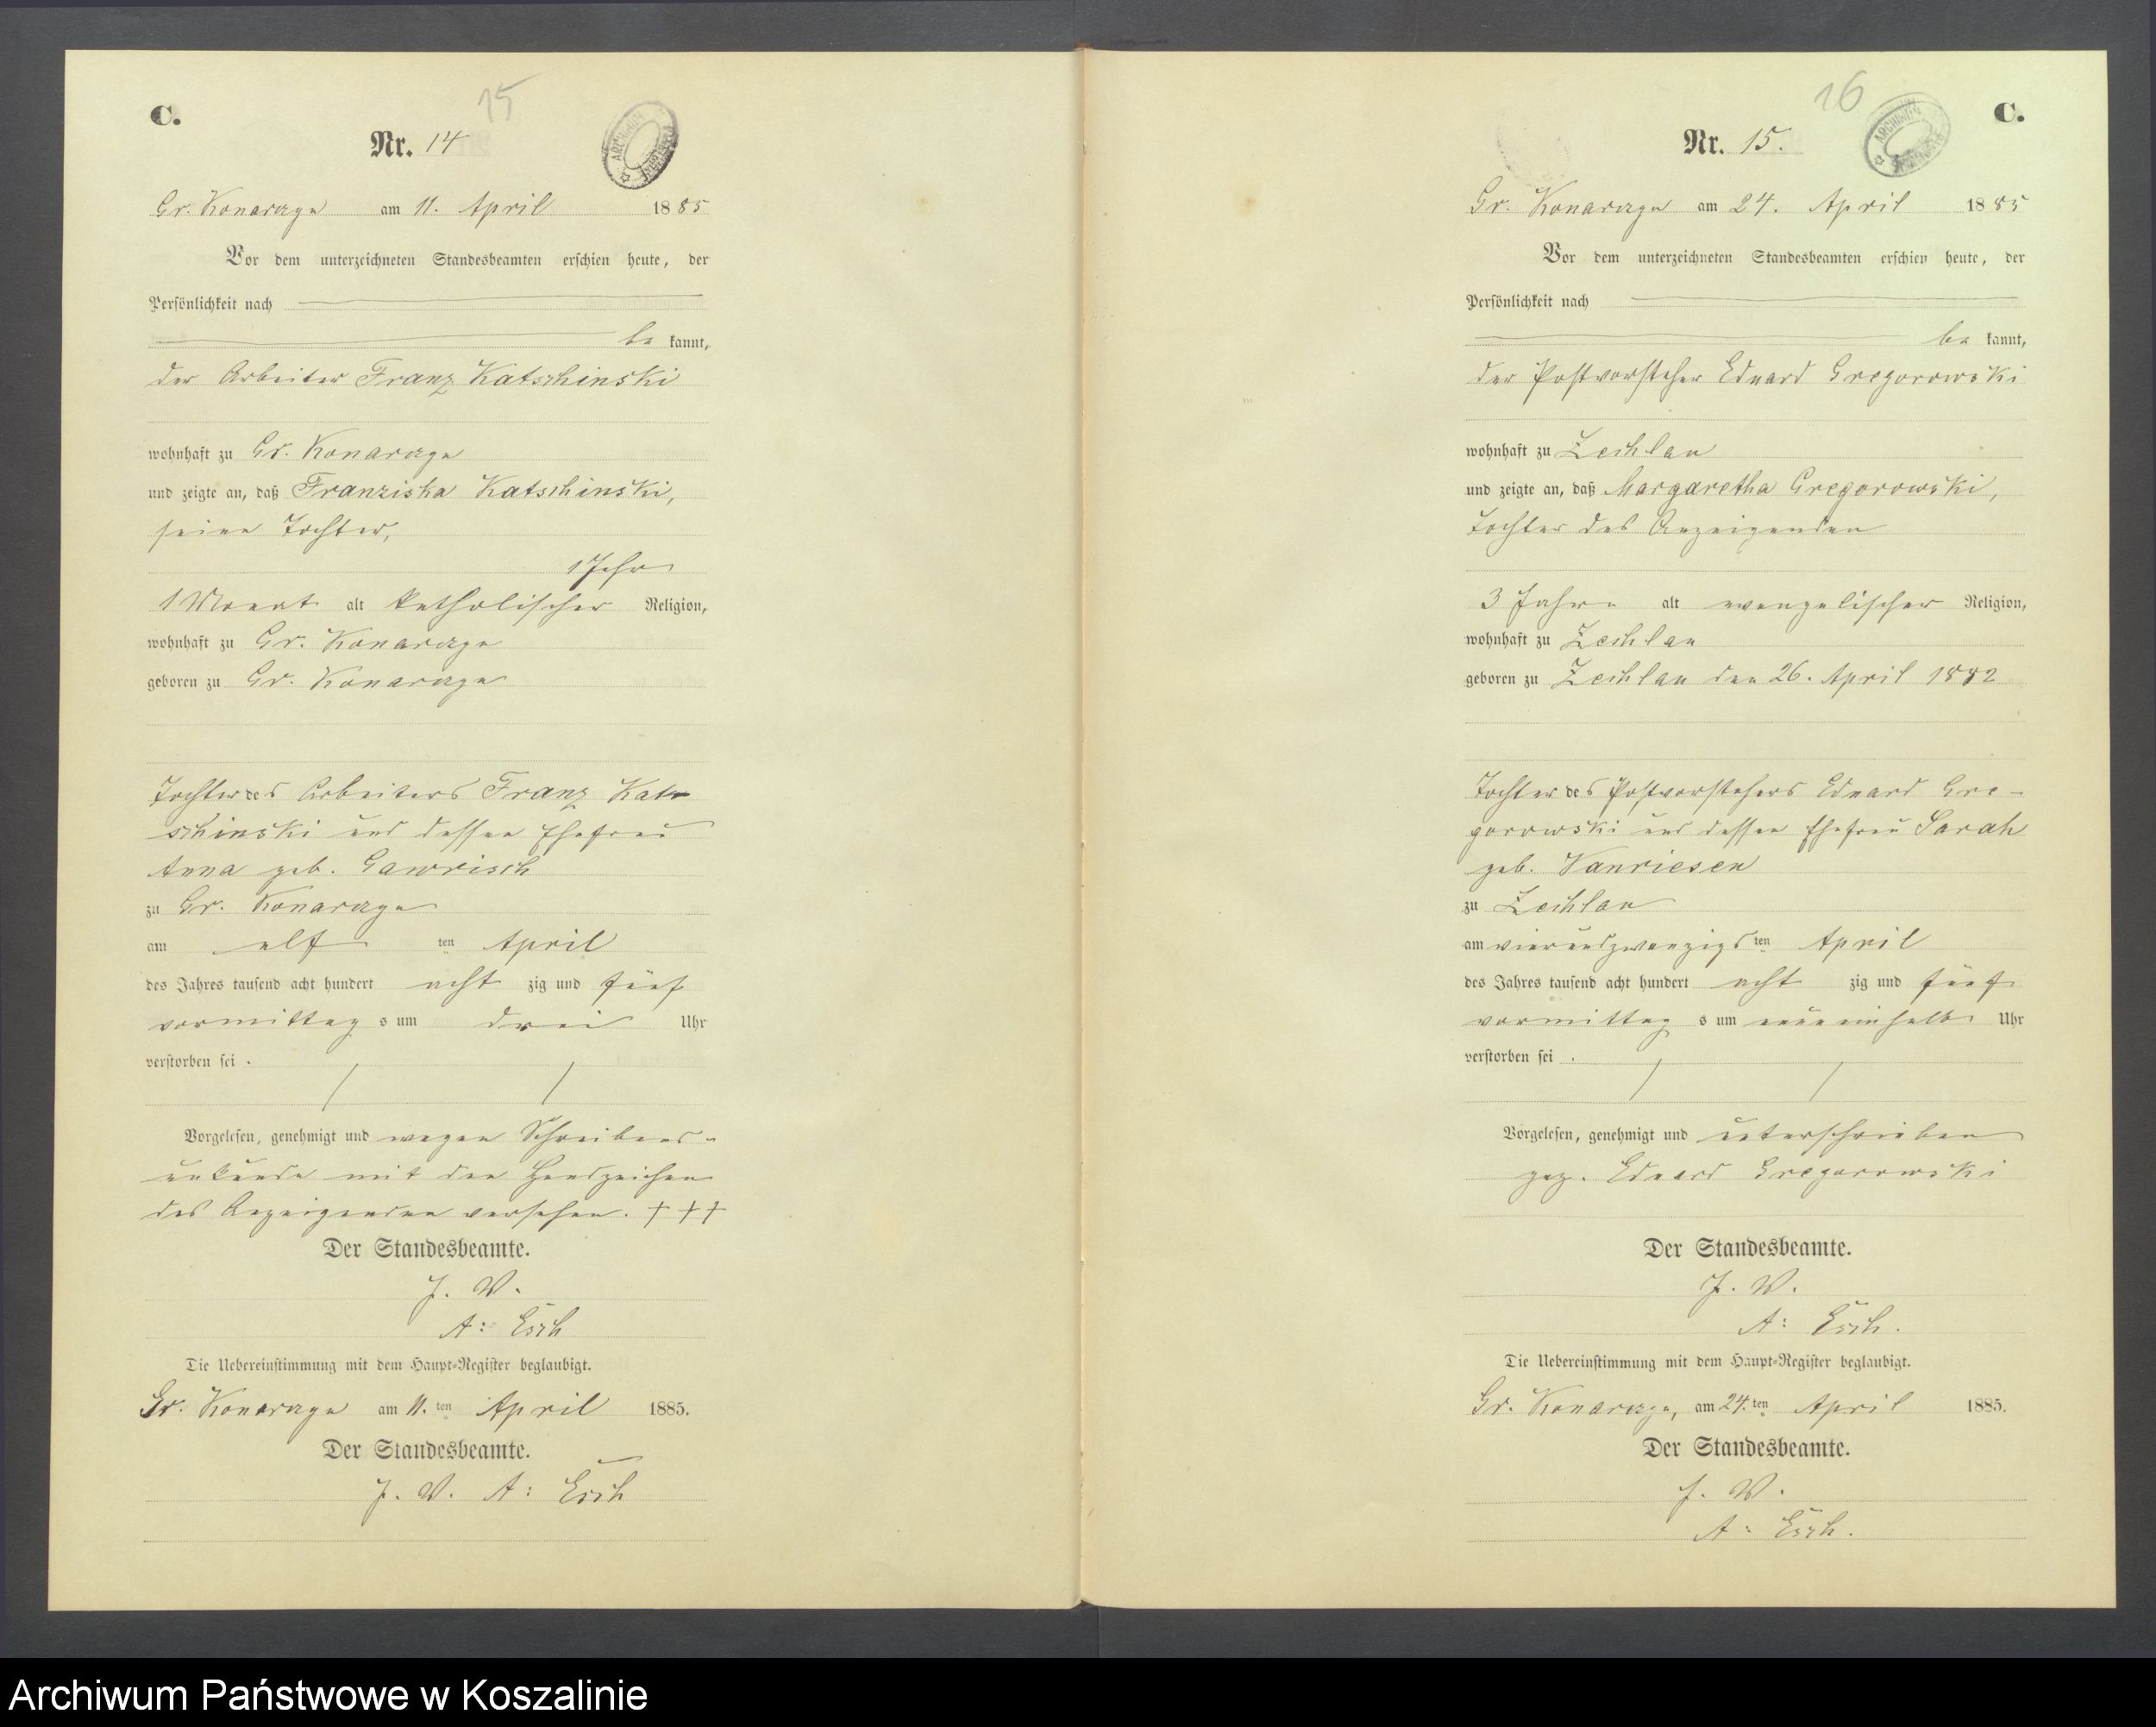 C.
15
Nr. 14
Gr. Konarczyn am 11. April 1885
Vor dem unterzeichneten Standesbeamten erschien heute, der
Persönlichkeit nach
be kannt,
der Arbeiter Franz Katschinski
wohnhaft zu Gr. Konarczyn
und zeigte an, daß Franziska Katschinski,
seine Tochter,
1 Jahr
1 Monat alt katholischer Religion,
wohnhaft zu Gr. Konarczyn
geboren zu Gr. Konarczyn
Tochter des Arbeiters Franz Kat-
schinski und dessen Ehefrau
Anna geb. Gawrisch
zu Gr. Konarczyn
am elf ten April
des Jahres tausend acht hundert acht zig und fünf
vormittag s um drei Uhr
verstorben sei.
Vorgelesen, genehmigt und wegen Schreibens-
unkunde mit den Handzeichen
des Anzeigenden versehen. + + +
Der Standesbeamte.
J. V.
A: Esch
Die Uebereinstimmung mit dem Haupt-Register beglaubigt.
Gr. Konarczyn am 11. ten April 1885.
Der Standesbeamte.
J. V. A: Esch
16
C.
Nr. 15.
Gr. Konarczyn am 24. April 1885
Vor dem unterzeichneten Standesbeamten erschien heute, der
Persönlichkeit nach
be kannt,
der Postvorsteher Eduard Gregorowski
wohnhaft zu Zechlau
und zeigte an, daß Margaretha Gregorowski,
Tochter des Anzeigenden
3 Jahre alt evangelischer Religion,
wohnhaft zu Zechlau
geboren zu Zechlau den 26. April 1882
Tochter des Postvorstehers Eduard Gre-
gorowski und dessen Ehefrau Sarah
geb. Vanriesen
zu Zechlau
am vierundzwanzigs ten April
des Jahres tausend acht hundert acht zig und fünf
vormittag s um neuneinhalb Uhr
verstorben sei.
Vorgelesen, genehmigt und unterschrieben
gez. Eduard Gregorowski
Der Standesbeamte.
J. V.
A: Esch.
Die Uebereinstimmung mit dem Haupt-Register beglaubigt.
Gr. Konarczyn, am 24. ten April 1885.
Der Standesbeamte.
J. V.
A: Esch.
Archiwum Państwowe w Koszalinie